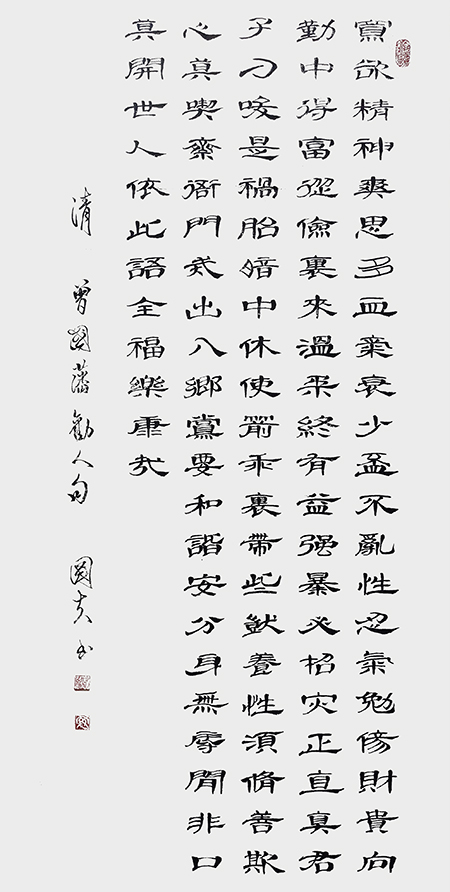 寡欲精神爽思多血氣衰少盃不亂性忍氣勉傷財貴向
勤中得富從儉裏來溫柔終有益强暴必招灾正直真君
子刁唆是禍胎暗中休使箭乖裏帶些獃養性須脩善欺
心莫喫齋衙門戒出入鄉黨要和諧安分身無辱閒非口
莫開世人依此語全福樂康哉
清 曾國藩勸人句 國書